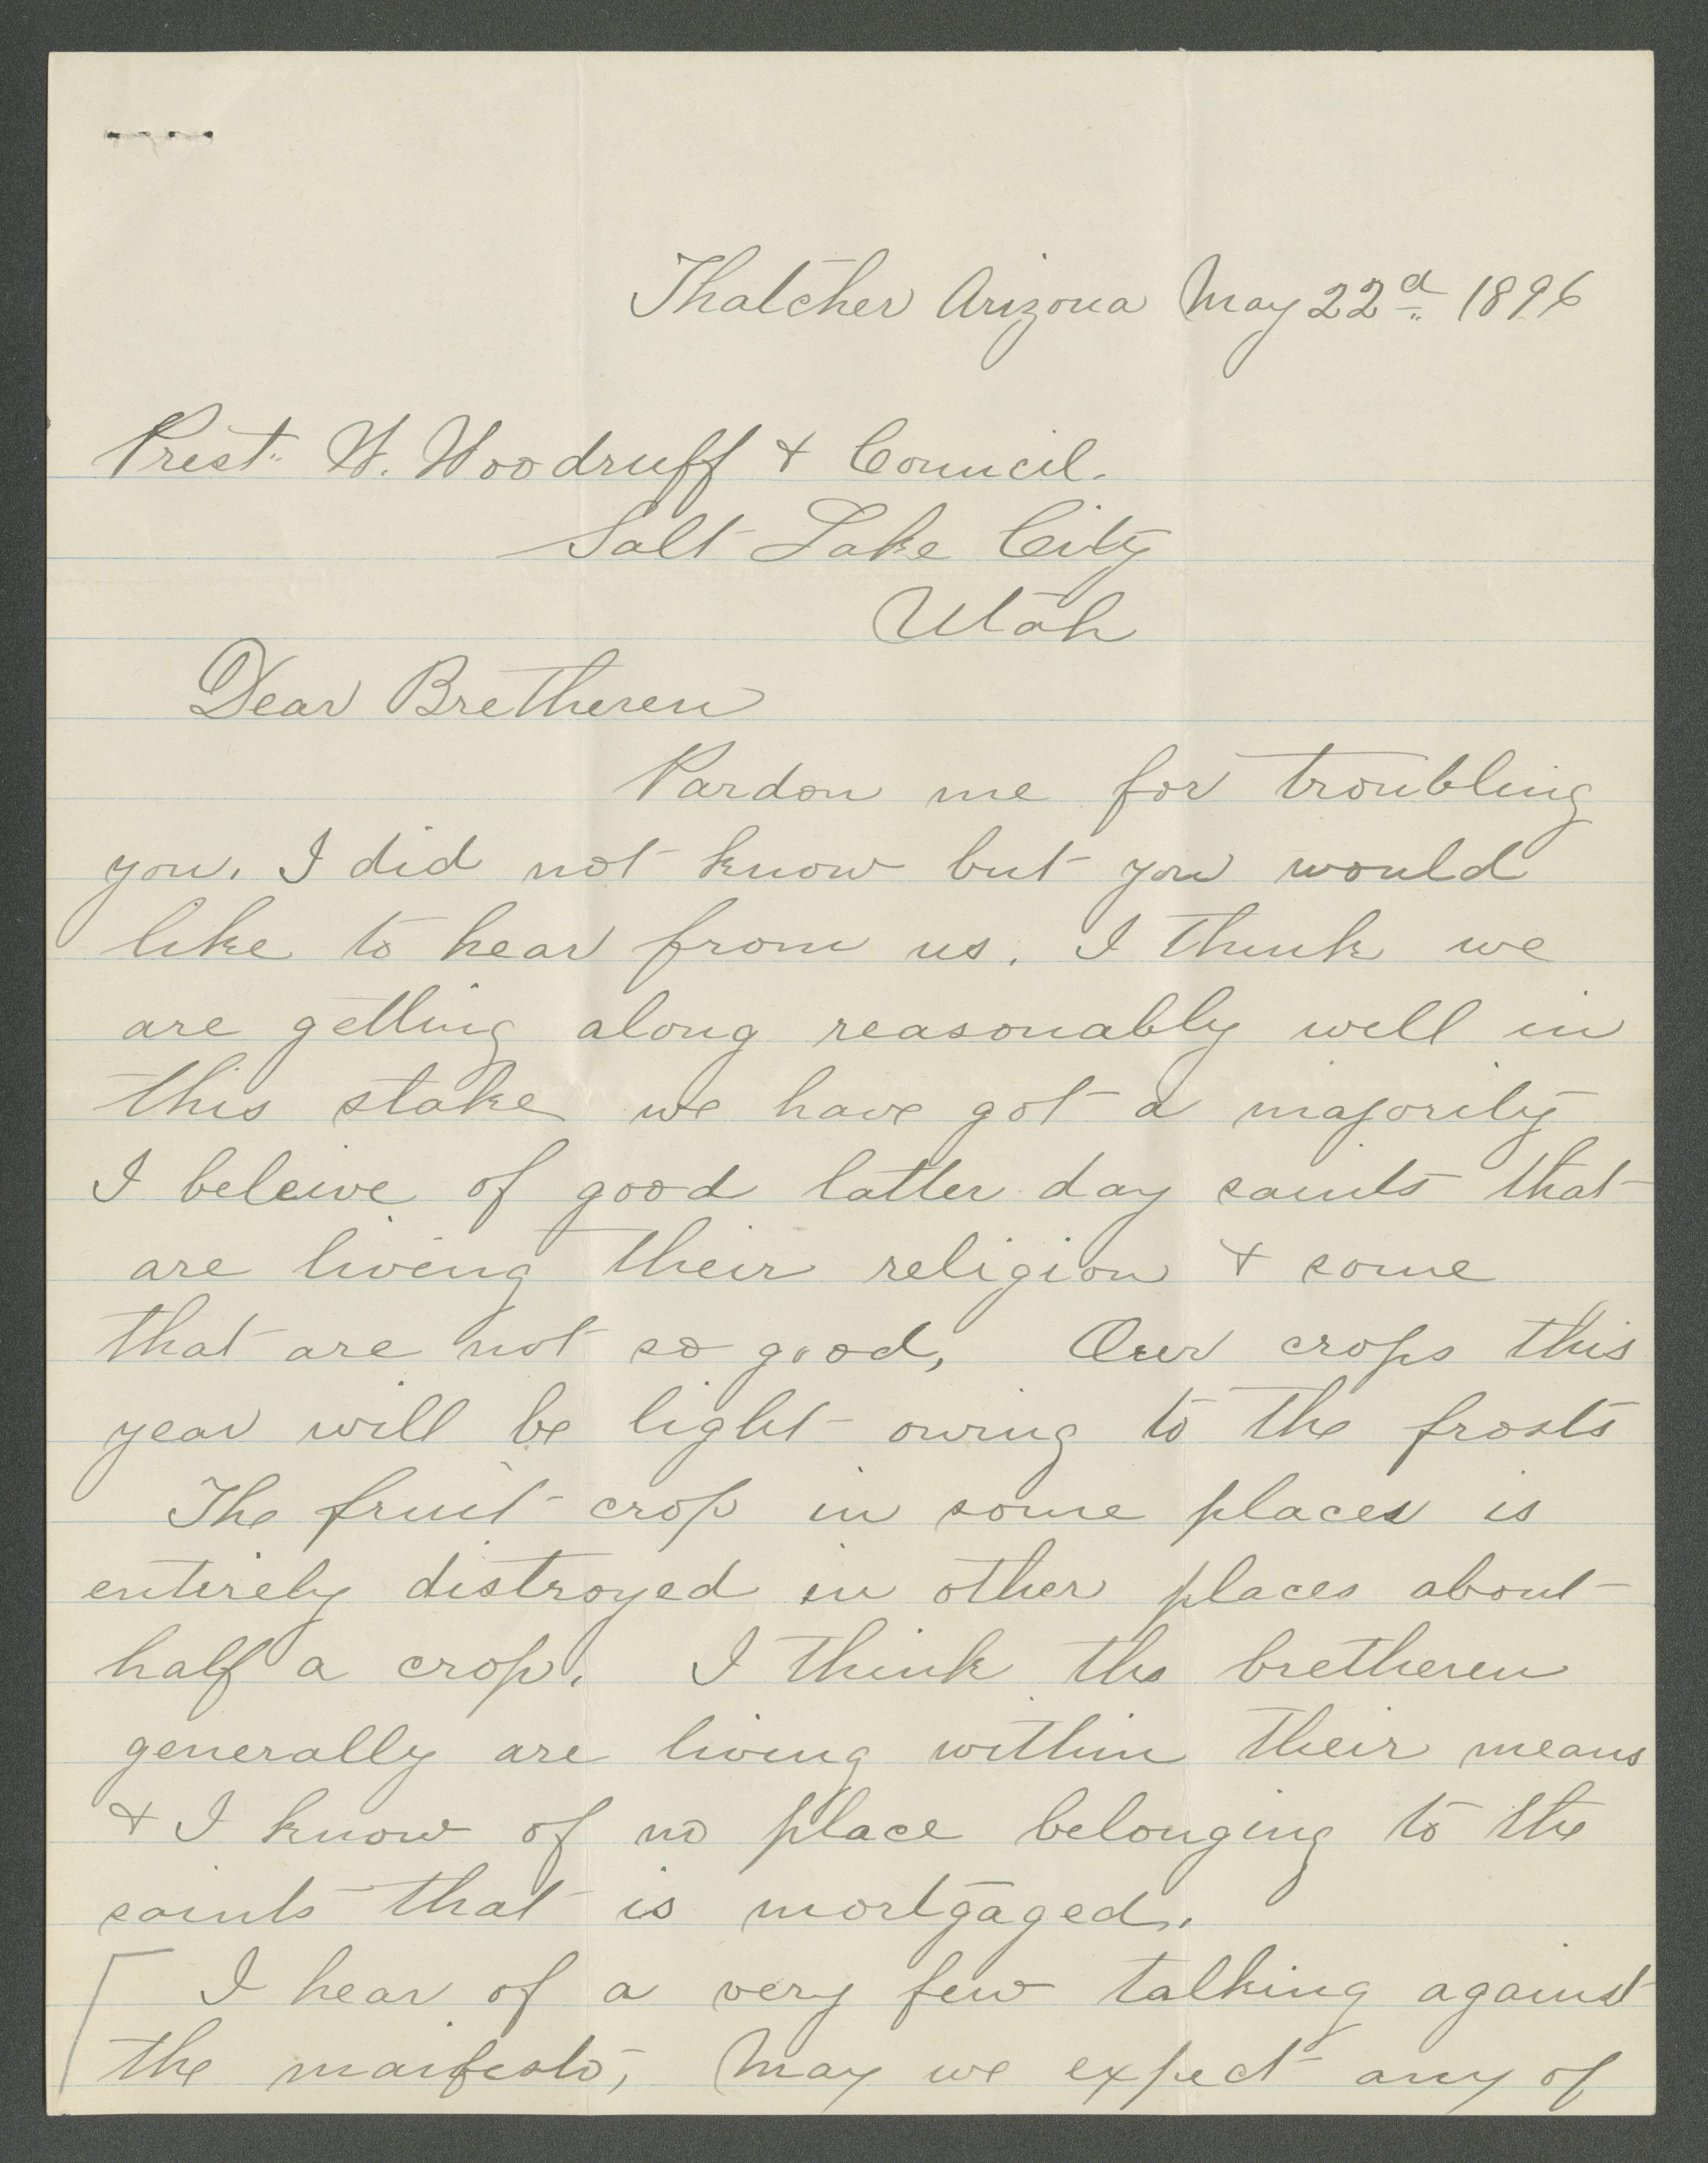 Thatcher Arizona May 22d 1896
Prest. W. Woodruff & Council.
Salt Lake City
Utah
Dear Bretheren
Pardon me for troubling
you. I did not know but you would
like to hear from us. I think we
are getting along reasonably well in
this stake we have got a majority
I beleive of good latter day saints that
are living their religion & some
that are not so good, Our crops this
year will be light owing to the frosts
The fruit crop in some places is
entirely distroyed in other places about
half a crop. I think the bretheren
generally are living within their means
& I know of no place belonging to the
saints that is mortgaged.
[ I hear of a very few talking against
the maifesto, May we expect any of